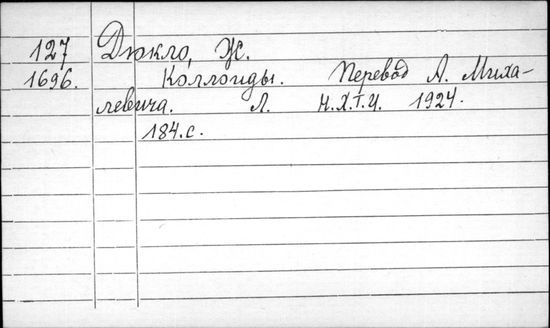 127 Дюкло, Ж.
1696. Коллоиды. Перевод А. Миха-
левича. Л. Н.Х.Т.И. 1924.
184.с.